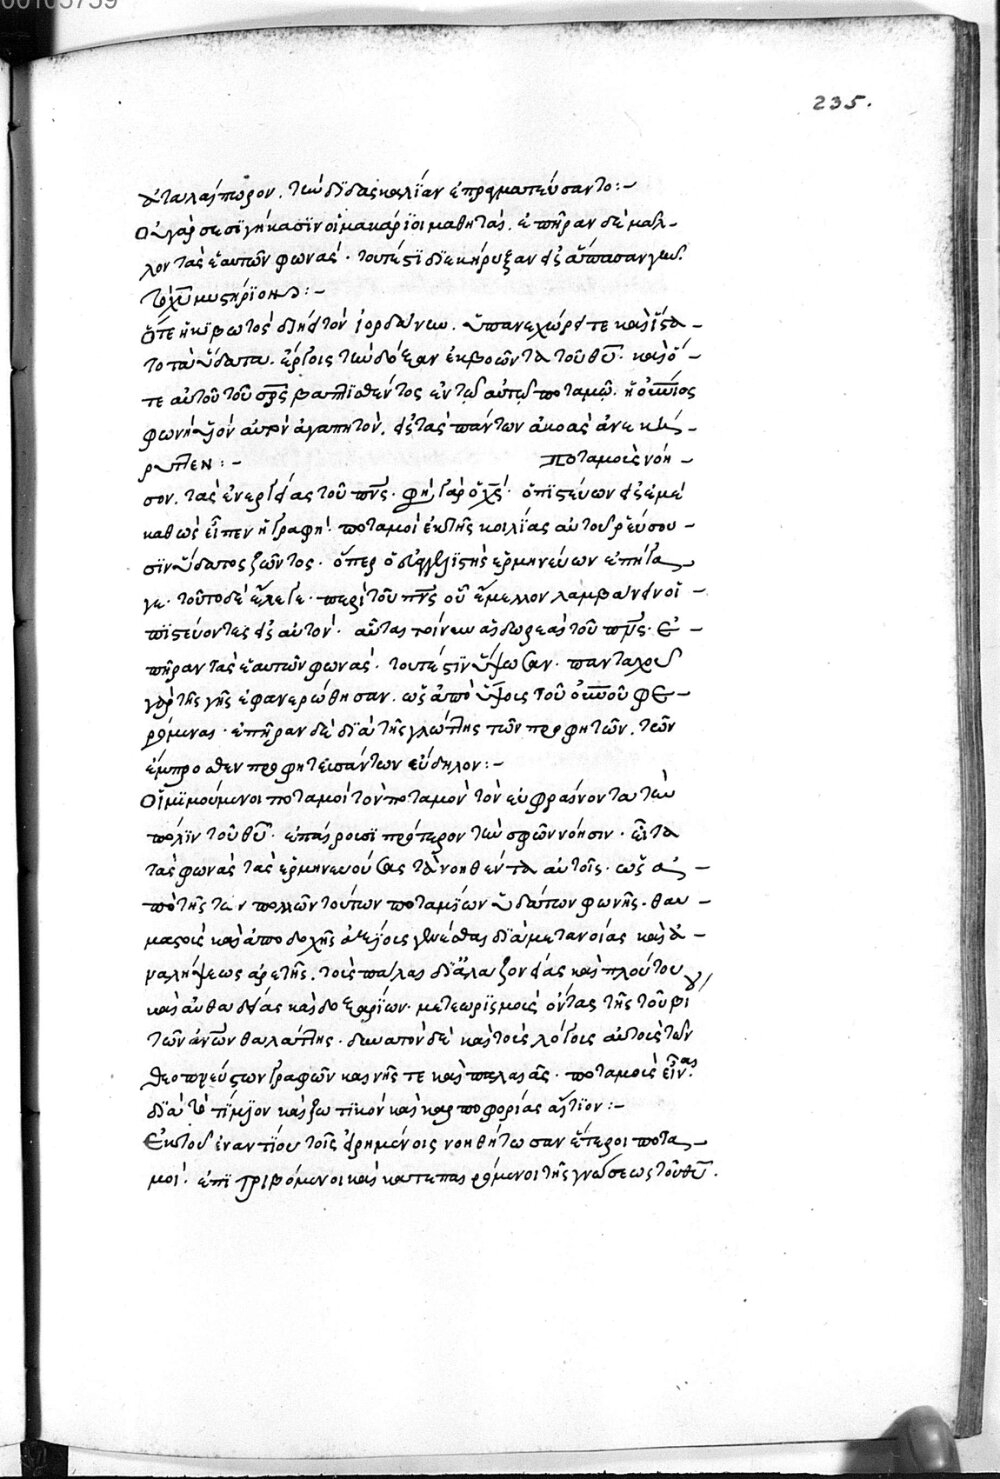 00105759
235.
ἀταλαίπωρον. τὴν διδασκαλίαν ἐπραγματεύσαντο:-
Οὐ γὰρ σεσιγήκασιν οἱ μακάριοι μαθηταί. ἐπῆραν δὲ μᾶλ-
λον τὰς ἑαυτῶν φωνάς. τουτέστι διεκήρυξαν εἰς ἅπασαν γῆν.
τὸ χῦ μυστήριον:-
Ὅτε ἡ κιβωτὸς διῄει τὸν ἰορδάνην. ὑπανεχώρει τε καὶ ἵστα-
το τὰ ὕδατα. ἔργοις τὴν δόξαν ἐκβοῶντα τοῦ θῦ. καὶ ὅ-
τε αὐτοῦ τοῦ σρς βαπτισθέντος ἐν τῷ αὐτῷ ποταμῷ. ἡ οὐνιος
φωνὴ υἱὸν αὐτὸν ἀγαπητόν. εἰς τὰς πάντων ἀκοὰς ἀνεκή-
ρυττεν:- ποταμοὺς νόη-
σον. τὰς ἐνεργείας τοῦ πνς. φησὶ γὰρ ὁ χς. ὁ πιστεύων εἰς ἐμὲ
καθὼς εἶπεν ἡ γραφή. ποταμοὶ ἐκ τῆς κοιλίας αὐτοῦ ῥεύσου-
σιν ὕδατος ζῶντος. ὅπερ ὁ εὐαγγελιστὴς ἑρμηνεύων ἐπήγα-
γε. τοῦτο δὲ ἔλεγε. περὶ τοῦ πνς οὗ ἔμελλον λαμβάνειν οἱ-
πιστεύοντες εἰς αὐτόν. αὗται τοίνυν αἱ δωρεαὶ τοῦ πνς. ἐ-
πῆραν τὰς ἑαυτῶν φωνάς. τουτέστιν ὕψωσαν. πανταχοῦ
γὰρ τῆς γῆς ἐφανερώθησαν. ὡς ἀπὸ ὕψους τοῦ οὐνοῦ φε-
ρόμεναι. ἐπῆραν δὲ διὰ τῆς γλώττης τῶν προφητῶν. τῶν
ἔμπροσθεν προφητευσάντων εὔδηλον:-
Οἱ μιμούμενοι ποταμοὶ τὸν ποταμὸν τὸν εὐφραίνοντα τὴν
πόλιν τοῦ θῦ. ἐπαίρουσι πρότερον τὴν σφῶν νόησιν. εἶτα
τὰς φωνὰς τὰς ἑρμηνευούσας τὰ νοηθέντα αὐτοῖς. ὡς ἀ-
πὸ τῆς τῶν πολλῶν τούτων ποταμίων ὑδάτων φωνῆς. θαυ-
μαστοὺς καὶ ἀποδοχῆς ἀξίους γενέσθαι διὰ μετανοίας καὶ ἀ-
ναλήψεως ἀρετῆς. τοὺς πάλαι δι' ἀλαζονείας καὶ πλούτου
καὶ αὐθαδείας καὶ δοξαρίων. μετεωρισμοὺς ὄντας τῆς τοῦ βίου
τῶν ἀνων θαλάττης. δυνατὸν δὲ καὶ τοὺς λόγους αὐτοὺς τῶν
θεοπνεύστων γραφῶν καινῆς τε καὶ παλαιᾶς. ποταμοὺς εἶναι.
διὰ τὸ τίμιον καὶ ζωτικὸν καὶ καρποφορίας αἴτιον:-
Ἐκ τοῦ ἐναντίου τοῖς εἰρημένοις νοηθήτωσαν ἕτεροι ποτα-
μοί. ἐπιτριβόμενοι καὶ κατεπαιρόμενοι τῆς γνώσεως τοῦ θῦ.